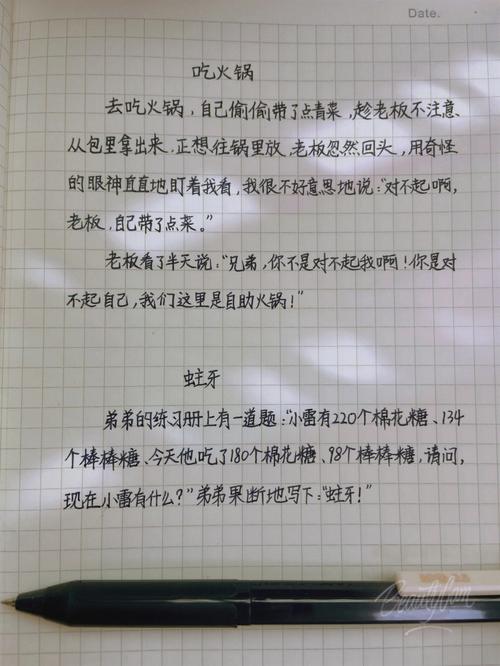 Date.
吃火锅
去吃火锅，自己偷偷带了点青菜，趁老板不注意、
从包里拿出来，正想住锅里放，老板忽然回头，用奇怪
的眼神直直地盯着我看，我很不好意思地说：“对不起啊，
老板，自己带了点菜。”
老板看了半天说：“兄弟，你不是对不起我啊！你是对
不起自己，我们这里是自助火锅！”
蛀牙
弟弟的练习册上有一道题：“小雷有220个棉花糖、134
个棒棒糖、今天他吃了180个棉花糖、98个棒棒糖，请问，
现在小雷有什么？”弟弟果断地写下：“蛀牙！”
BeautyCam